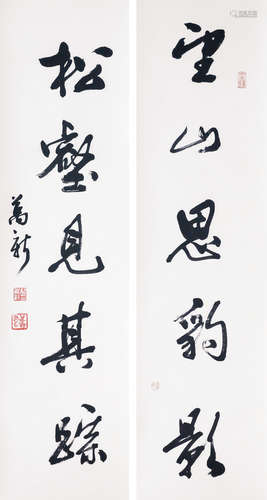 望山思豹影
松壑見其蹤
萬新